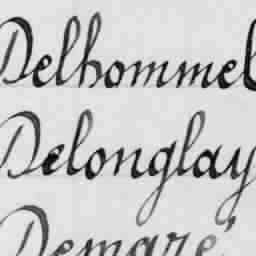 Delhommel
Delonglay
Demaré